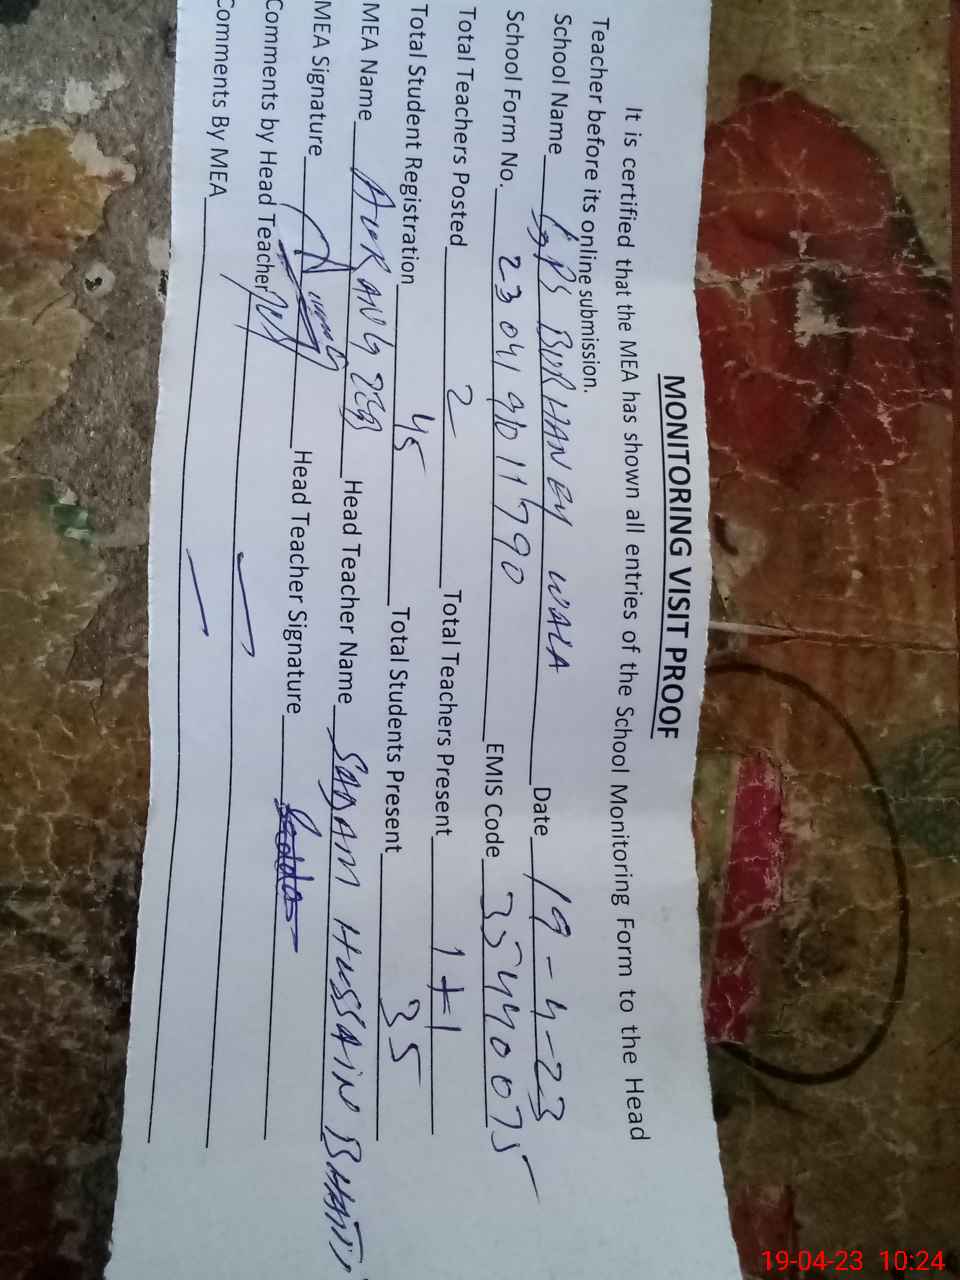 MONITORING VISIT PROOF
It is certified that the MEA has shown all entries of the School Monitoring Form to the Head
Teacher before its online submission.
School Name GPS BURHAN EY WALA Date 19-4-23
School Form No. 2304190 11790 EMIS Code 35440075
Total Teachers Posted 2 Total Teachers Present 1+1
Total Student Registration 45 Total Students Present 35
MEA Name AURANGZEB Head Teacher Name SADAM HUSSAIN BHATTI
MEA Signature Head Teacher Signature
Comments by Head Teacher
Comments By MEA
19-04-23 10:24